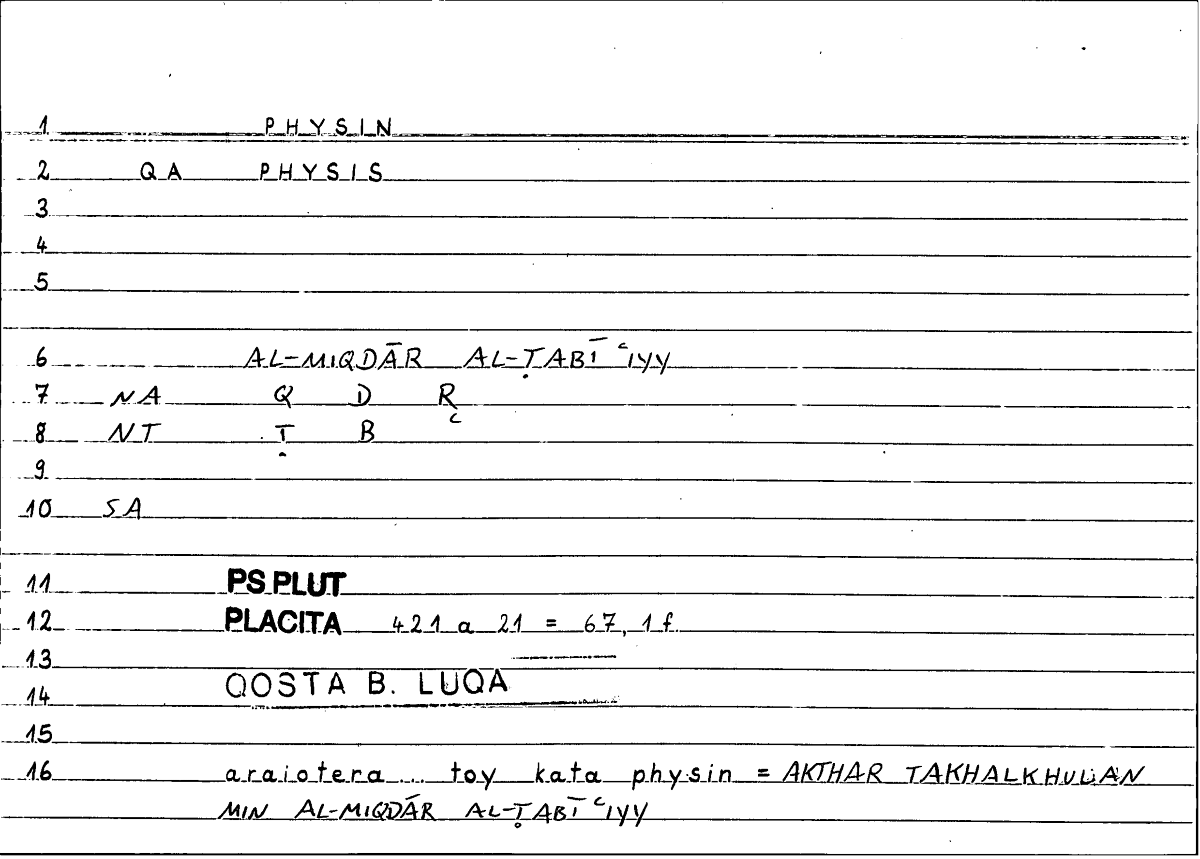 1 PHYSIN
2 QA PHYSIS
3
4
5
6 AL-MIQDĀR AL-ṬABĪʿIYY
7 NA Q D R
8 NT Ṭ B ʿ
9
10 SA
11 PS PLUT
12 PLACITA 421 a 21 = 67, 1 f.
13
14 QOSTA B. LUQA
15
16 araiotera ... toy kata physin = AKTHAR TAKHALKHULAN
MIN AL-MIQDĀR AL-ṬABĪʿIYY